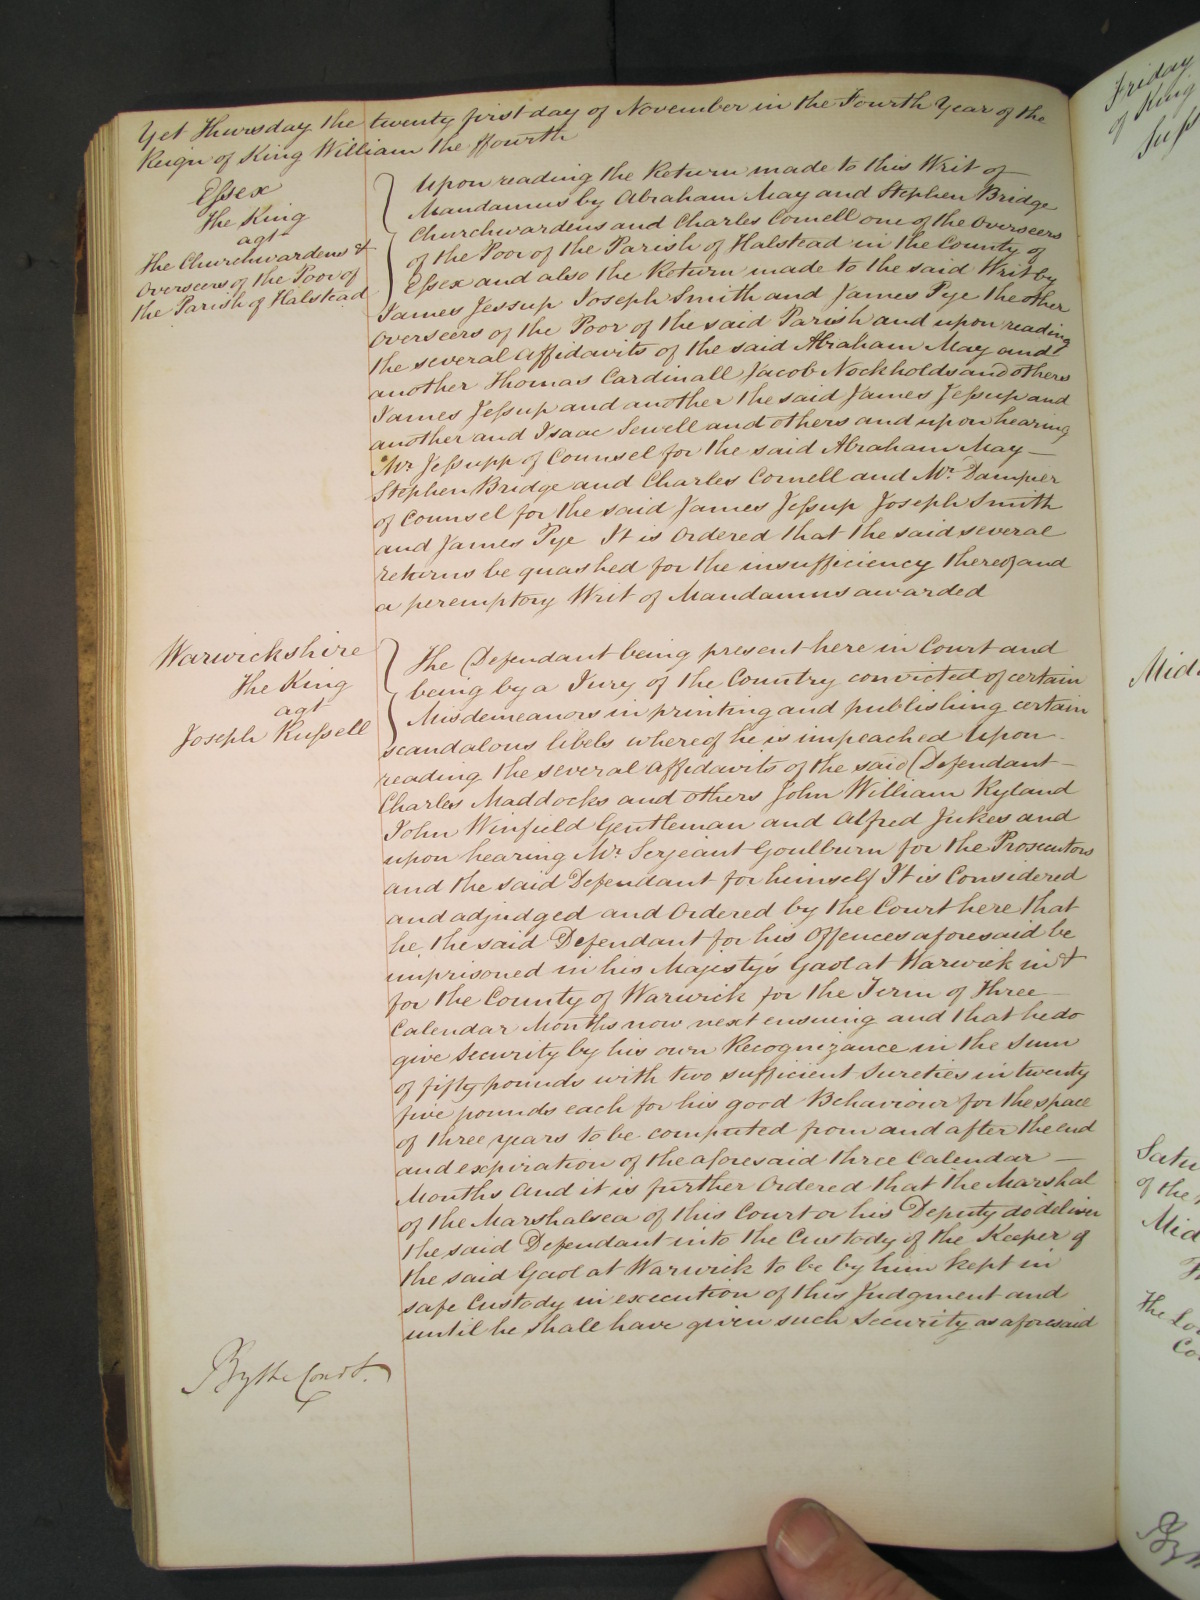 Yet Thursday the twenty first day of November in the Fourth Year of the
Reign of King William the ffourth
Essex
The King
agt
The Churchwardens &
Overseers of the Poor of
the Parish of Halstead
Upon reading the Return made to this Writ of
Mandamus by Abraham May and Stephen Bridge
Churchwardens and Charles Cornell one of the Overseers
of the Poor of the Parish of Halstead in the County of
Essex and also the Return made to the said Writ by
James Jessup Joseph Smith and James Pye the other
Overseers of the Poor of the said Parish and upon reading
the several affidavits of the said Abraham May and
another Thomas Cardinall Jacob Nockholds and others
James Jessup and another the said James Jessup and
another and Isaac Sewell and others and upon hearing
Mr. Jessupp of Counsel for the said Abraham May
Stephen Bridge and Charles Cornell and Mr. Dampier
of Counsel for the said James Jessup Joseph Smith
and James Pye It is Ordered that the said several
returns be quashed for the insufficiency thereof and
a peremptory Writ of Mandamus awarded
Warwickshire
The King
agt
Joseph Russell
The Defendant being present here in Court and
being by a Jury of the Country convicted of certain
Misdemeanors in printing and publishing certain
scandalous libels whereof he is impeached Upon
reading the several affidavits of the said Defendant
Charles Maddocks and others John William Ryland
John Winfield Gentleman and Alfred Jukes and
upon hearing Mr. Serjeant Goulburn for the Prosecutors
and the said Defendant for himself It is Considered
and adjudged and Ordered by the Court here that
he the said Defendant for his Offences aforesaid be
imprisoned in his Majesty's Gaol at Warwick in &
for the County of Warwick for the Term of Three
Calendar Months now next ensuing and that he do
give Security by his own Recognizance in the Sum
of fifty pounds with two sufficient Sureties in twenty
five pounds each for his good Behaviour for the space
of three years to be computed from and after the end
and expiration of the aforesaid three Calendar
Months And it is further Ordered that the Marshal
of the Marshalsea of this Court or his Deputy do deliver
the said Defendant into the Custody of the Keeper of
the said Gaol at Warwick to be by him kept in
safe Custody in execution of this Judgment and
until he shall have given such Security as aforesaid
By the Court.
Friday
of King
Mid
Satu
of the
Mid